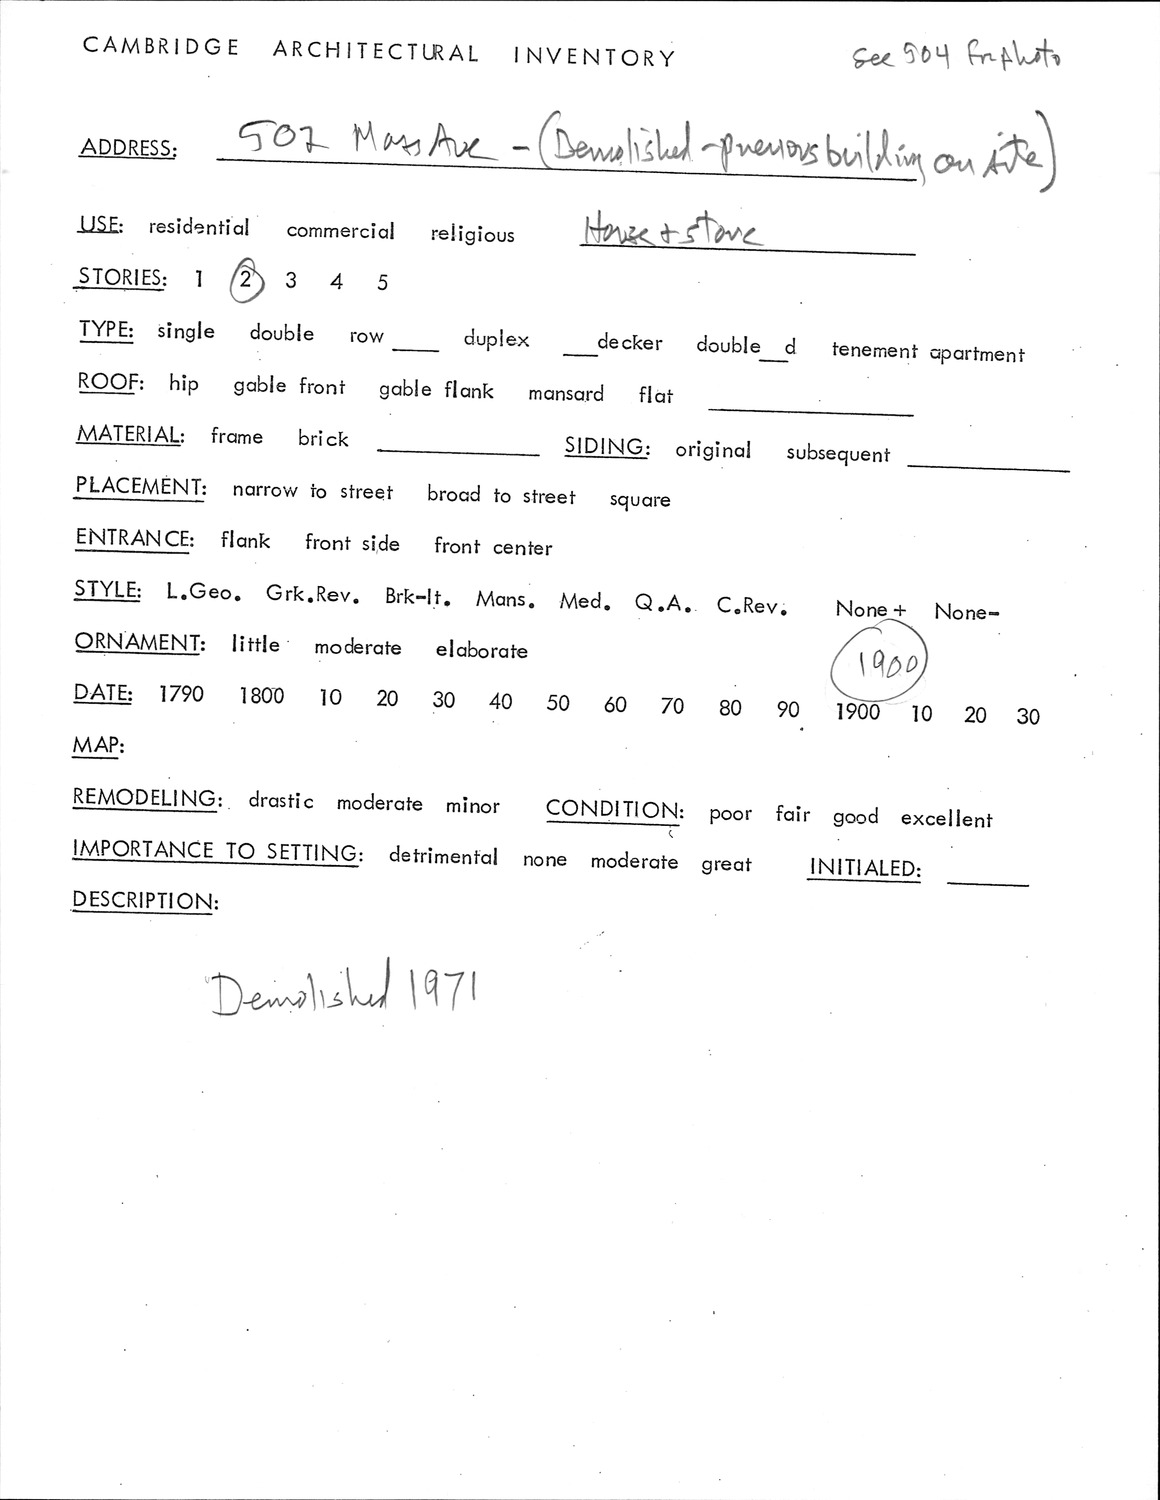 CAMBRIDGE ARCHITECTURAL INVENTORY See 504 for photo
ADDRESS: 502 Mass Ave - (Demolished - previous building on site)
USE: residential commercial religious House + store
STORIES: 1 2 3 4 5
TYPE: single double row ____ duplex ___decker double___d tenement apartment
ROOF: hip gable front gable flank mansard flat ____
MATERIAL: frame brick ____ SIDING: original subsequent ____
PLACEMENT: narrow to street broad to street square
ENTRANCE: flank front side front center
STYLE: L.Geo. Grk.Rev. Brk-It. Mans. Med. Q.A. C.Rev. None+ None-
ORNAMENT: little moderate elaborate 1900
DATE: 1790 1800 10 20 30 40 50 60 70 80 90 1900 10 20 30
MAP:
REMODELING: drastic moderate minor CONDITION: poor fair good excellent
IMPORTANCE TO SETTING: detrimental none moderate great INITIALED: ____
DESCRIPTION:
Demolished 1971